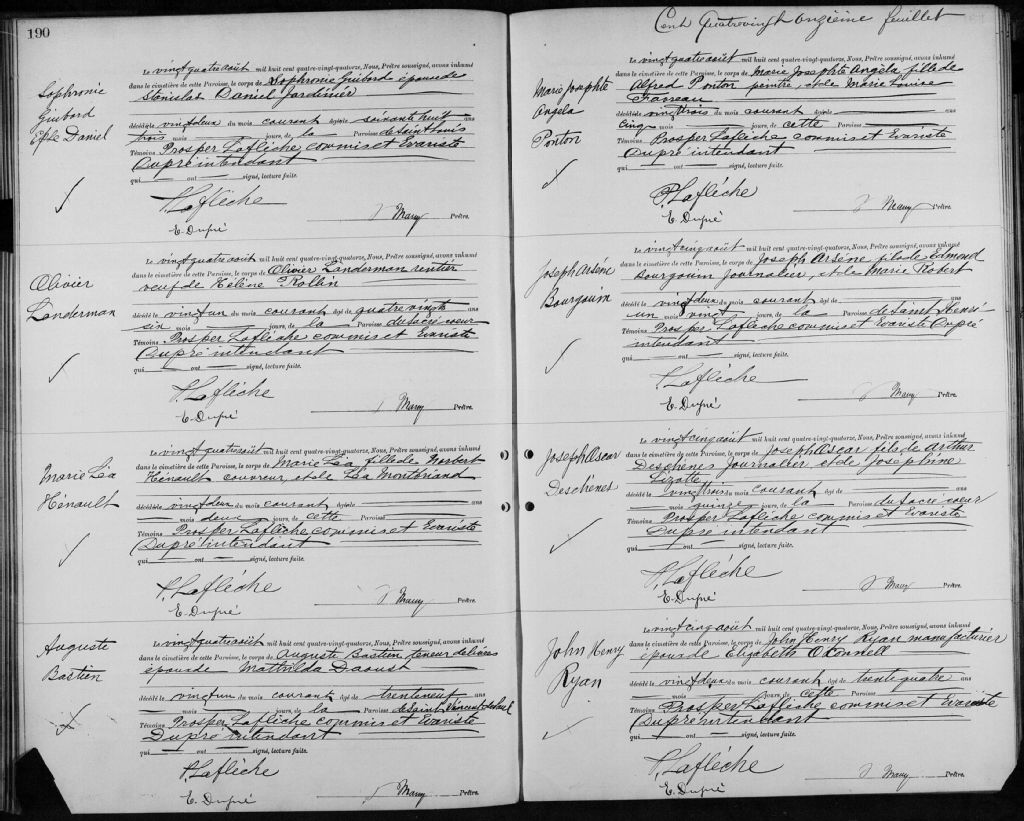 190
Sophronie
Guibord
Ép. de Daniel
Le vingt quatre août mil huit cent quatre-vingt-quatorze, Nous, Prêtre soussigné, avons inhumé
dans le cimetière de cette Paroisse, le corps de Sophronie Guibord épouse de
Stanislas Daniel Jardinier
décédée le vingt deux du mois courant âgée de soixante huit ans
trois mois jours, de la Paroisse de Saint Louis
Témoins Prosper Laflèche, commis et Evariste
Dupré intendant
qui ont signé, lecture faite.
P. Laflèche
E. Dupré
Prêtre.
Olivier
Landerman
Le vingt quatre août mil huit cent quatre-vingt-quatorze, Nous, Prêtre soussigné, avons inhumé
dans le cimetière de cette Paroisse, le corps de Olivier Landerman rentier
veuf de Hélène Rollin
décédé le vingt un du mois courant âgé de quatre vingt
six mois jours, de la Paroisse du Sacré coeur
Témoins Prosper Laflèche commis et Evariste
Dupré intendant
qui ont signé, lecture faite.
P. Laflèche
E. Dupré
Prêtre.
Marie Léa
Hénault
Le vingt quatre août mil huit cent quatre-vingt-quatorze, Nous, Prêtre soussigné, avons inhumé
dans le cimetière de cette Paroisse, le corps de Marie Léa fille de Norbert
Hénault couvreur, et de Léa Montbriand
décédée le vingt deux du mois courant âgée de ans
deux mois jours, de cette Paroisse
Témoins Prosper Laflèche commis et Evariste
Dupré intendant
qui ont signé, lecture faite.
P. Laflèche
E. Dupré
Prêtre.
Auguste
Bastien
Le vingt quatre août mil huit cent quatre-vingt-quatorze, Nous, Prêtre soussigné, avons inhumé
dans le cimetière de cette Paroisse, le corps de Auguste Bastien, teneur de livres
époux de Mathilda Daoust
décédé le vingt un du mois courant âgé de trente neuf ans
mois jours, de la Paroisse de Saint Vincent de Paul
Témoins Prosper Laflèche commis et Evariste
Dupré intendant
qui ont signé, lecture faite.
P. Laflèche
E. Dupré
Prêtre.
Cent Quatrevingt onzième feuillet
Marie Josephte
Angela
Ponton
Le vingt quatre août mil huit cent quatre-vingt-quatorze, Nous, Prêtre soussigné, avons inhumé
dans le cimetière de cette Paroisse, le corps de Marie Josephte Angela fille de
Alfred Ponton peintre, et de Marie Louise
décédée le vingt trois du mois courant âgée de ans
cinq mois jours, de cette Paroisse
Témoins Prosper Laflèche commis et Evariste
Dupré intendant
qui ont signé, lecture faite.
P. Laflèche
E. Dupré
Prêtre.
Joseph Arsène
Bourgouin
Le vingt cinq août mil huit cent quatre-vingt-quatorze, Nous, Prêtre soussigné, avons inhumé
dans le cimetière de cette Paroisse, le corps de Joseph Arsène fils de Edmond
Bourgouin Journalier, et de Marie Robert
décédé le vingt deux du mois courant âgé de ans
un mois vingt jours, de la Paroisse de Saint Henri
Témoins Prosper Laflèche commis et Evariste Dupré
intendant
qui ont signé, lecture faite.
P. Laflèche
E. Dupré
Prêtre.
Joseph Oscar
Deschênes
Le vingt cinq août mil huit cent quatre-vingt-quatorze, Nous, Prêtre soussigné, avons inhumé
dans le cimetière de cette Paroisse, le corps de Joseph Oscar fils de Arthur
Deschenes Journalier et de Josephine
Lizotte
décédé le vingt trois du mois courant âgé de ans
mois quinze jours, de la Paroisse du Sacré coeur
Témoins Prosper Laflèche commis et Evariste
Dupré intendant
qui ont signé, lecture faite.
P. Laflèche
E. Dupré
Prêtre.
John Henry
Ryan
Le vingt cinq août mil huit cent quatre-vingt-quatorze, Nous, Prêtre soussigné, avons inhumé
dans le cimetière de cette Paroisse, le corps de John Henry Ryan manufacturier
époux de Elizabeth O'Connell
décédé le vingt deux du mois courant âgé de trente quatre ans
mois jours, de cette Paroisse
Témoins Prosper Laflèche commis et Evariste
Dupré intendant
qui ont signé, lecture faite.
P. Laflèche
E. Dupré
Prêtre.